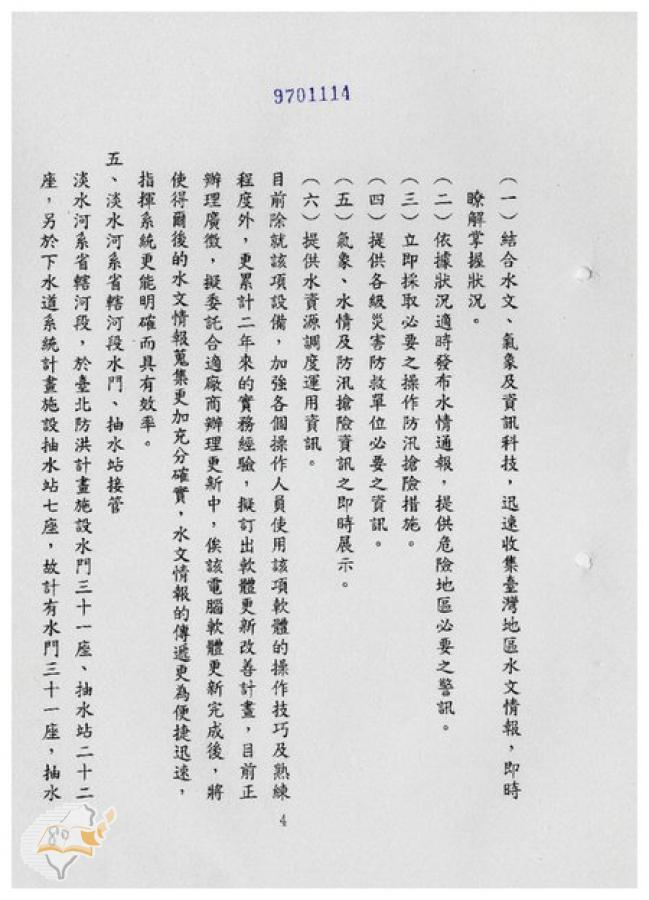 9701114
（一）結合水文、氣象及資訊科技，迅速收集臺灣地區水文情報，即時
瞭解掌握狀況。
（二）依據狀況適時發布水情通報，提供危險地區必要之警訊。
（三）立即採取必要之操作防汛搶險措施。
（四）提供各級災害防救單位必要之資訊。
（五）氣象、水情及防汛搶險資訊之即時展示。
（六）提供水資源調度運用資訊。
目前除就該項設備，加強各個操作人員使用該項軟體的操作技巧及熟練
程度外，更累計二年來的實務經驗，擬訂出軟體更新改善計畫，目前正
辦理廣徵，擬委託合適廠商辦理更新中，俟該電腦軟體更新完成後，將
使得爾後的水文情報蒐集更加充分確實，水文情報的傳遞更為便捷迅速，
指揮系統更能明確而具有效率。
五、淡水河系省轄河段水門、抽水站接管
淡水河系省轄河段，於臺北防洪計畫施設水門三十一座、抽水站二十二
座，另於下水道系統計畫施設抽水站七座，故計有水門三十一座，抽水
4
80